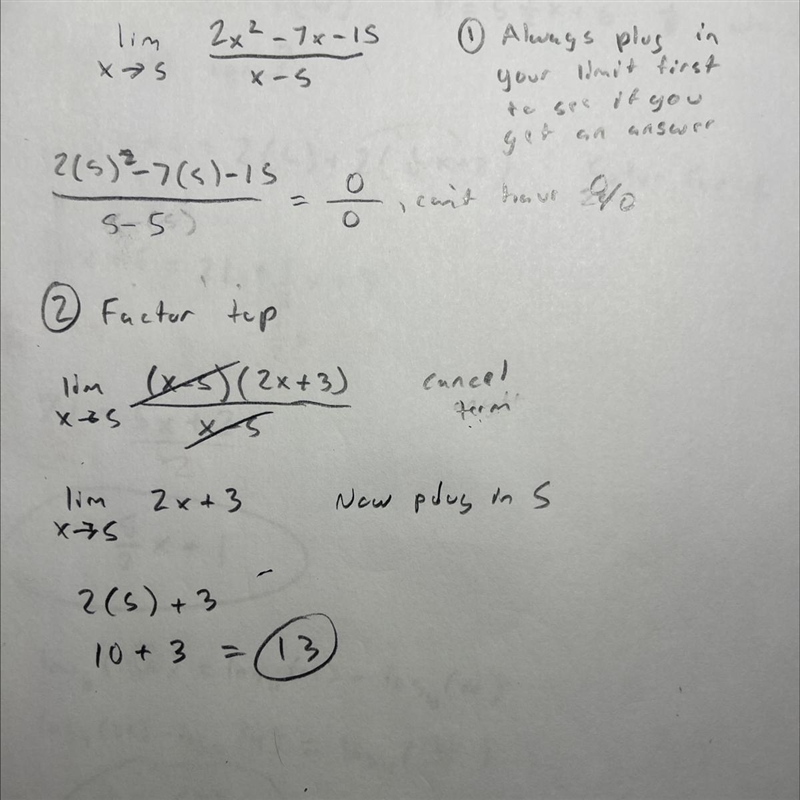 lim 2x² - 7x - 15
x→5 x - 5
① Always plug in
your limit first
to see if you
get an answer
2(5)² - 7(5) - 15
5 - 5
= 0/0, can't have 0/0
② Factor top
lim (x-5)(2x+3) cancel
x→5 x-5 term
lim 2x + 3 Now plug in 5
x→5
2(5) + 3
10 + 3 = 13